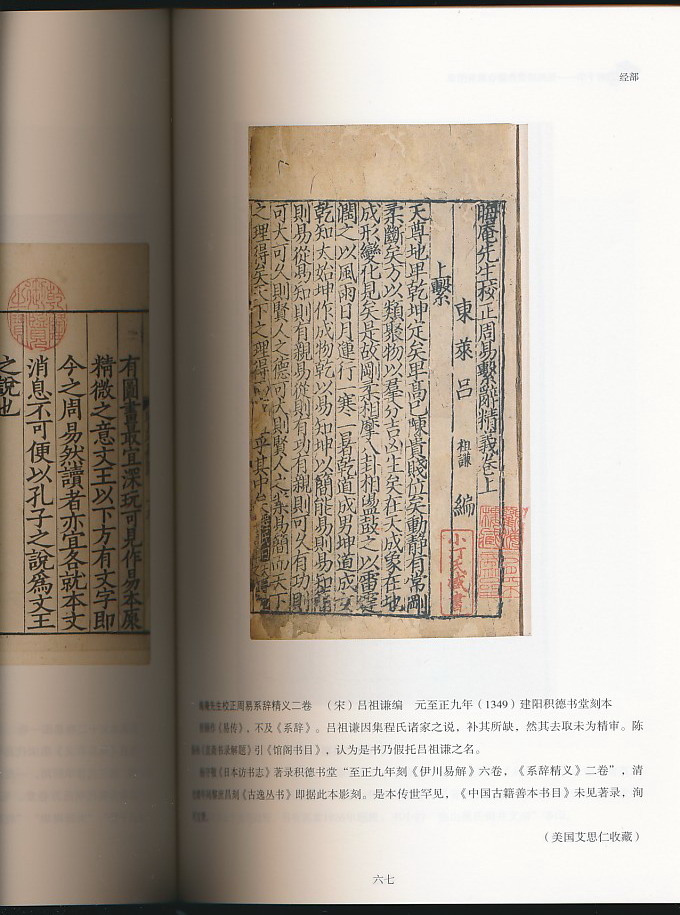 有圖畫最宜深玩可見作易本原
精微之意文王以下方有文字即
今之周易然讀者亦宜各就本文
消息不可便以孔子之說為文王
之說也
经部
晦庵先生校正周易繫辭精義卷上
東萊呂 祖謙 編
小汀氏藏書
上繫
天尊地卑乾坤定矣卑高已陳貴賤位矣動靜有常剛
柔斷矣方以類聚物以羣分吉凶生矣在天成象在地
成形變化見矣是故剛柔相摩八卦相盪鼓之以雷霆
潤之以風雨日月運行一寒一暑乾道成男坤道成女
乾知大始坤作成物乾以易知坤以簡能易則易知簡
則易從易知則有親易從則有功有親則可久有功則
可大可久則賢人之德可大則賢人之業易簡而天下
之理得矣天下之理得 乎其中矣
晦庵先生校正周易系辞精义二卷 （宋）吕祖谦编 元至正九年（1349）建阳积德书堂刻本
《易传》，不及《系辞》。吕祖谦因集程氏诸家之说，补其所缺，然其去取未为精审。陈
《直斋书录解题》引《馆阁书目》，认为是书乃假托吕祖谦之名。
《日本访书志》著录积德书堂“至正九年刻《伊川易解》六卷，《系辞精义》二卷”，清
《古逸丛书》即据此本影刻。是本传世罕见，《中国古籍善本书目》未见著录，洵
（美国艾思仁收藏）
六七